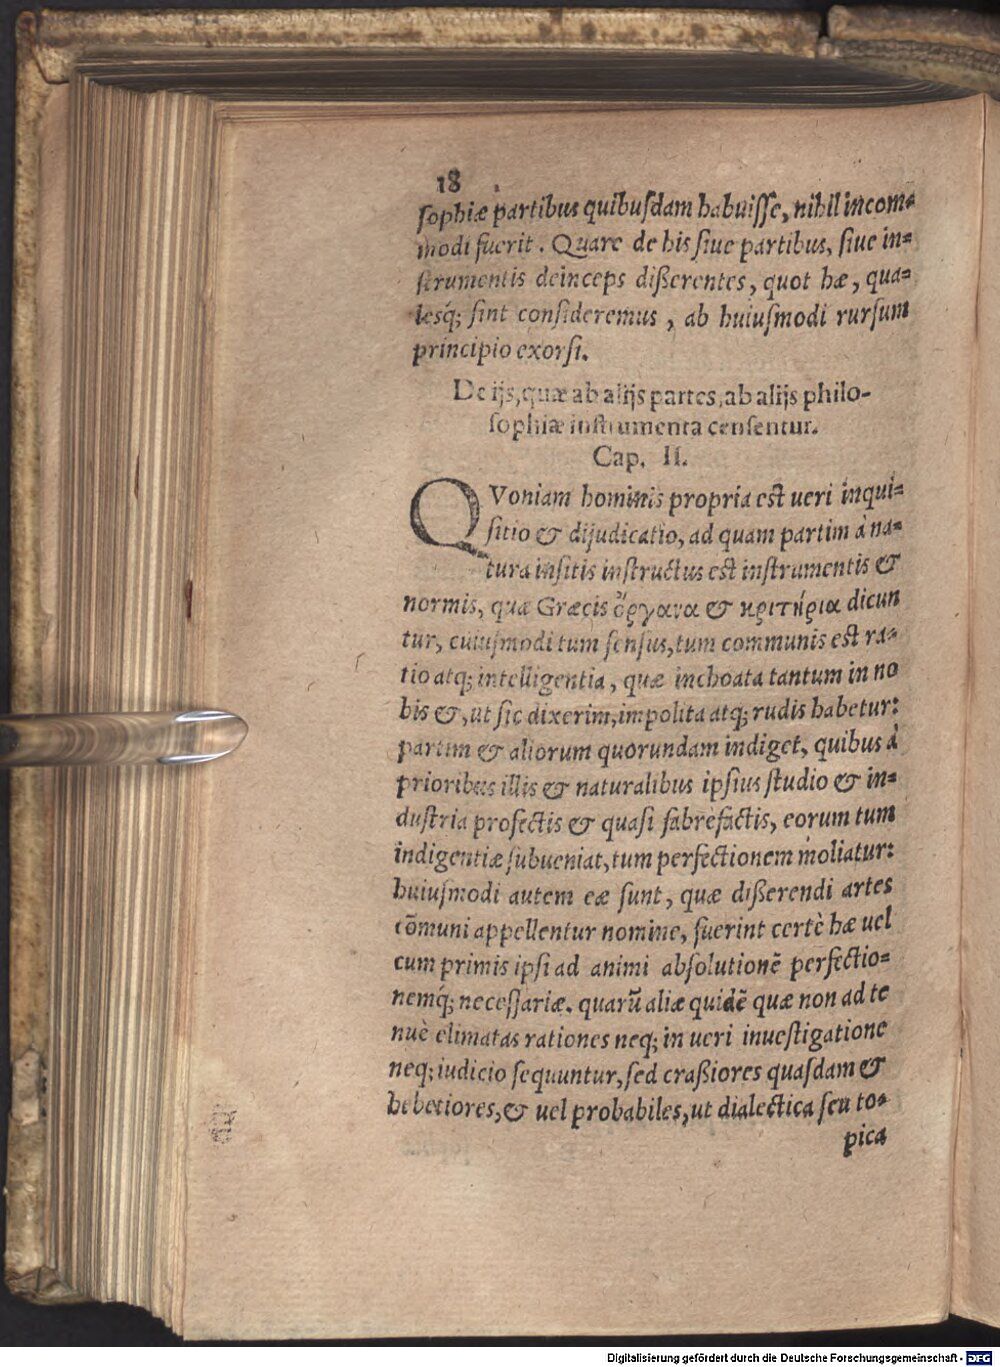 18
sophiæ partibus quibusdam habuisse, nihil incom=
modi fuerit. Quare de his siue partibus, siue in=
strumentis deinceps dißerentes, quot hæ, qua=
lesq́; sint consideremus, ab huiusmodi rursum
principio exorsi.
De ijs, quæ ab alijs partes, ab alijs philo-
sophiæ instrumenta censentur.
Cap. II.
QVoniam hominis propria est ueri inqui=
sitio & dijudicatio, ad quam partim à na=
tura insitis instructus est instrumentis &
normis, quæ Græcis ὄργανα & κριτήρια dicun
tur, cuiusmodi tum sensus, tum communis est ra=
tio atq; intelligentia, quæ inchoata tantum in no
bis &, ut sic dixerim, impolita atq; rudis habetur:
partim & aliorum quorundam indiget, quibus à
prioribus illis & naturalibus ipsius studio & in=
dustria profectis & quasi fabrefactis, eorum tum
indigentiæ subueniat, tum perfectionem moliatur:
huiusmodi autem eæ sunt, quæ dißerendi artes
cōmuni appellentur nomine, fuerint certè hæ uel
cum primis ipsi ad animi absolutionē perfectio=
nemq́; necessariæ. quarū aliæ quidē quæ non ad te
nuè elimatas rationes neq; in ueri inuestigatione
neq; iudicio sequuntur, sed craßiores quasdam &
hebetiores, & uel probabiles, ut dialectica seu to=
pica
Digitalisierung gefördert durch die Deutsche Forschungsgemeinschaft - DFG